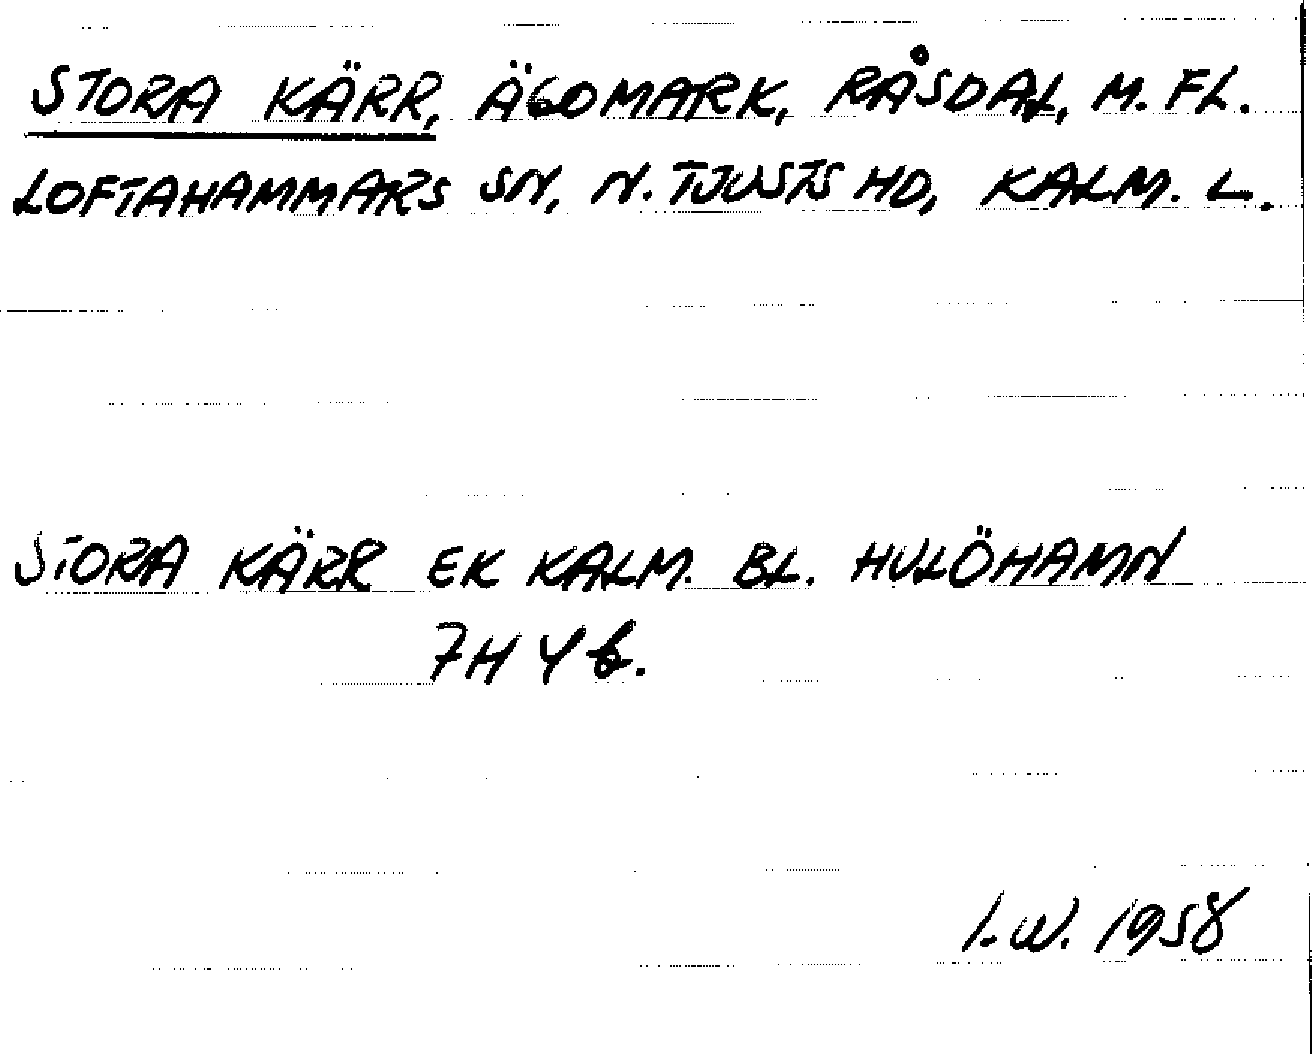 STORA KÄRR, ÄGOMARK, RÅSDAL, M. FL.
LOFTAHAMMARS SN, N. TJUSTS HD, KALM. L.
STORA KÄRR EK KALM. BL. HULÖHAMN
7H Y b.
I.W. 1958